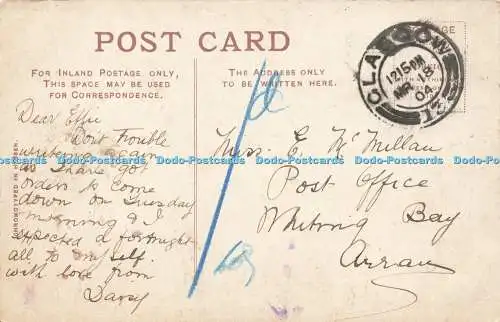 POST CARD
FOR INLAND POSTAGE ONLY,
THIS SPACE MAY BE USED
FOR CORRESPONDENCE.
THE ADDRESS ONLY
TO BE WRITTEN HERE.
GLASGOW
12.15 PM
18
04
Dear Effie
Don't trouble
writing again
as I have got
orders to come
down on Tuesday
morning & I
expected a fortnight
all to myself.
with love from
Davy
Miss. E. McMillan
Post Office
Whiting Bay
Arran
CHROMOTYPED IN
Dodo-Postcards Dodo-Postcards Dodo-Postcards Dodo-Postcards Dodo-Postcards